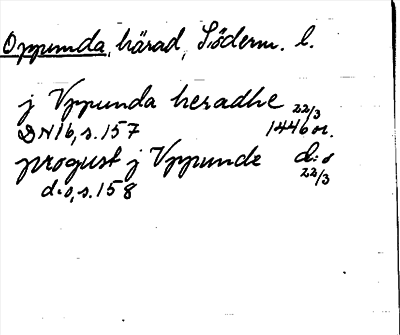 Oppunda, härad, Söderm. l.
j Vppunda heradhe 22/3
DN 16, s. 157 1446 or.
progust j Vppunde d:o
d:o, s. 158 22/3